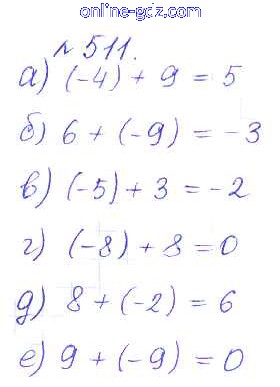 online-gdz.com
№ 511.
а) (-4) + 9 = 5
б) 6 + (-9) = -3
в) (-5) + 3 = -2
г) (-8) + 8 = 0
д) 8 + (-2) = 6
е) 9 + (-9) = 0